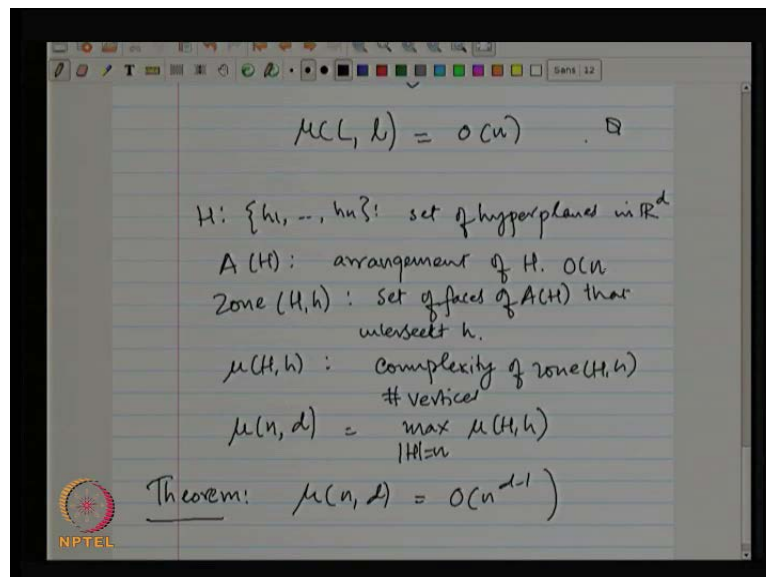 Sans 12
μ(L, l) = O(n)
H: {h1, --, hn}: set of hyperplanes in ℝ^d
A(H): arrangement of H. O(n
Zone (H,h): set of faces of A(H) that
intersect h.
μ(H,h): complexity of zone(H,h)
# vertices
μ(n,d) = max μ(H,h)
|H|=n
Theorem: μ(n,d) = O(n^{d-1})
NPTEL